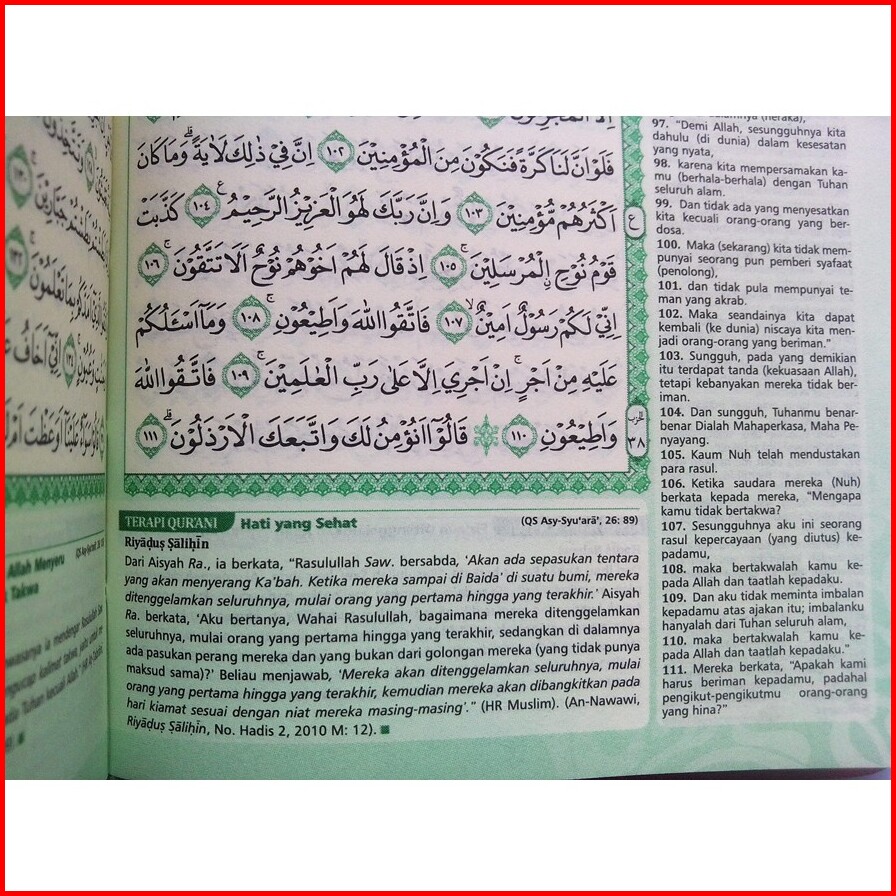 فَلَوْ اَنَّ لَنَا كَرَّةً فَنَكُوْنَ مِنَ الْمُؤْمِنِيْنَ ١٠٢ اِنَّ فِيْ ذٰلِكَ لَاٰيَةً ۗوَمَا كَانَ
اَكْثَرُهُمْ مُّؤْمِنِيْنَ ١٠٣ وَاِنَّ رَبَّكَ لَهُوَ الْعَزِيْزُ الرَّحِيْمُ ࣖ ١٠٤ كَذَّبَتْ
قَوْمُ نُوْحِ ِۨالْمُرْسَلِيْنَ ۚ ١٠٥ اِذْ قَالَ لَهُمْ اَخُوْهُمْ نُوْحٌ اَلَا تَتَّقُوْنَ ۚ ١٠٦
اِنِّيْ لَكُمْ رَسُوْلٌ اَمِيْنٌ ۙ ١٠٧ فَاتَّقُوا اللّٰهَ وَاَطِيْعُوْنِ ۚ ١٠٨ وَمَآ اَسْـَٔلُكُمْ
عَلَيْهِ مِنْ اَجْرٍۚ اِنْ اَجْرِيَ اِلَّا عَلٰى رَبِّ الْعٰلَمِيْنَ ۚ ١٠٩ فَاتَّقُوا اللّٰهَ
وَاَطِيْعُوْنِ ١١٠ ۞ قَالُوْٓا اَنُؤْمِنُ لَكَ وَاتَّبَعَكَ الْاَرْذَلُوْنَ ۗ ١١١
ع
الحزب
٣٨
TERAPI QUR'ANI Hati yang Sehat (QS Asy-Syu'arā', 26: 89)
Riyāḍuṣ Ṣāliḥīn
Dari Aisyah Ra., ia berkata, "Rasulullah Saw. bersabda, 'Akan ada sepasukan tentara
yang akan menyerang Ka'bah. Ketika mereka sampai di Baida' di suatu bumi, mereka
ditenggelamkan seluruhnya, mulai orang yang pertama hingga yang terakhir.' Aisyah
Ra. berkata, 'Aku bertanya, Wahai Rasulullah, bagaimana mereka ditenggelamkan
seluruhnya, mulai orang yang pertama hingga yang terakhir, sedangkan di dalamnya
ada pasukan perang mereka dan yang bukan dari golongan mereka (yang tidak punya
maksud sama)?' Beliau menjawab, 'Mereka akan ditenggelamkan seluruhnya, mulai
orang yang pertama hingga yang terakhir, kemudian mereka akan dibangkitkan pada
hari kiamat sesuai dengan niat mereka masing-masing'." (HR Muslim). (An-Nawawi,
Riyāḍuṣ Ṣāliḥīn, No. Hadis 2, 2010 M: 12).
(neraka),
97. "Demi Allah, sesungguhnya kita
dahulu (di dunia) dalam kesesatan
yang nyata,
98. karena kita mempersamakan ka-
mu (berhala-berhala) dengan Tuhan
seluruh alam.
99. Dan tidak ada yang menyesatkan
kita kecuali orang-orang yang ber-
dosa.
100. Maka (sekarang) kita tidak mem-
punyai seorang pun pemberi syafaat
(penolong),
101. dan tidak pula mempunyai te-
man yang akrab.
102. Maka seandainya kita dapat
kembali (ke dunia) niscaya kita men-
jadi orang-orang yang beriman."
103. Sungguh, pada yang demikian
itu terdapat tanda (kekuasaan Allah),
tetapi kebanyakan mereka tidak ber-
iman.
104. Dan sungguh, Tuhanmu benar-
benar Dialah Mahaperkasa, Maha Pe-
nyayang.
105. Kaum Nuh telah mendustakan
para rasul.
106. Ketika saudara mereka (Nuh)
berkata kepada mereka, "Mengapa
kamu tidak bertakwa?
107. Sesungguhnya aku ini seorang
rasul kepercayaan (yang diutus) ke-
padamu,
108. maka bertakwalah kamu ke-
pada Allah dan taatlah kepadaku.
109. Dan aku tidak meminta imbalan
kepadamu atas ajakan itu; imbalanku
hanyalah dari Tuhan seluruh alam,
110. maka bertakwalah kamu ke-
pada Allah dan taatlah kepadaku."
111. Mereka berkata, "Apakah kami
harus beriman kepadamu, padahal
pengikut-pengikutmu orang-orang
yang hina?"
Allah Menyeru
Takwa